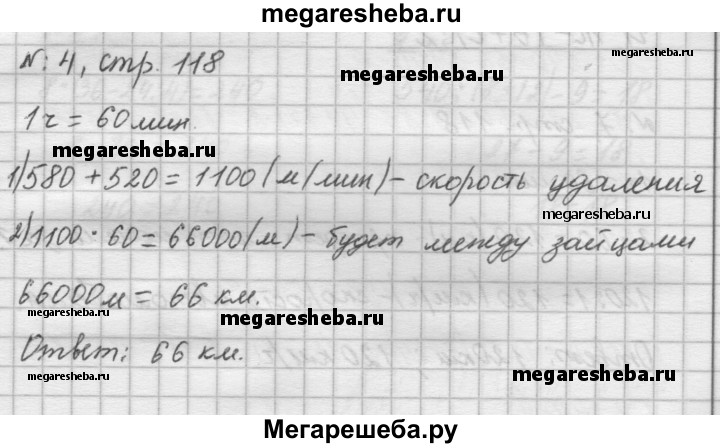 megaresheba.ru
№: 4, стр. 118
megaresheba.ru
1 ч = 60 мин.
megaresheba.ru
1) 580 + 520 = 1100 (м/мин) – скорость удаления
megaresheba.ru
2) 1100 · 60 = 66000 (м) – будет между зайцами
66000 м = 66 км.
megaresheba.ru
Ответ: 66 км.
megaresheba.ru
megaresheba.ru
Мегарешеба.ру